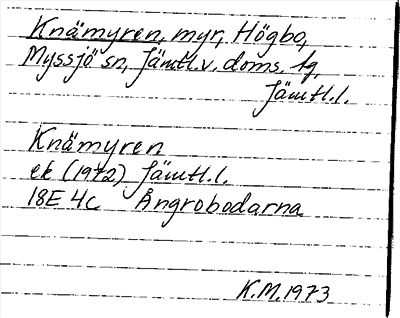 Knämyren, myr, Högbo,
Myssjö sn, Jämtl.v. doms. tg,
Jämtl.l.
Knämyren
ek (1972) Jämtl.l.
18E 4c Ångrobodarna
K.M.1973